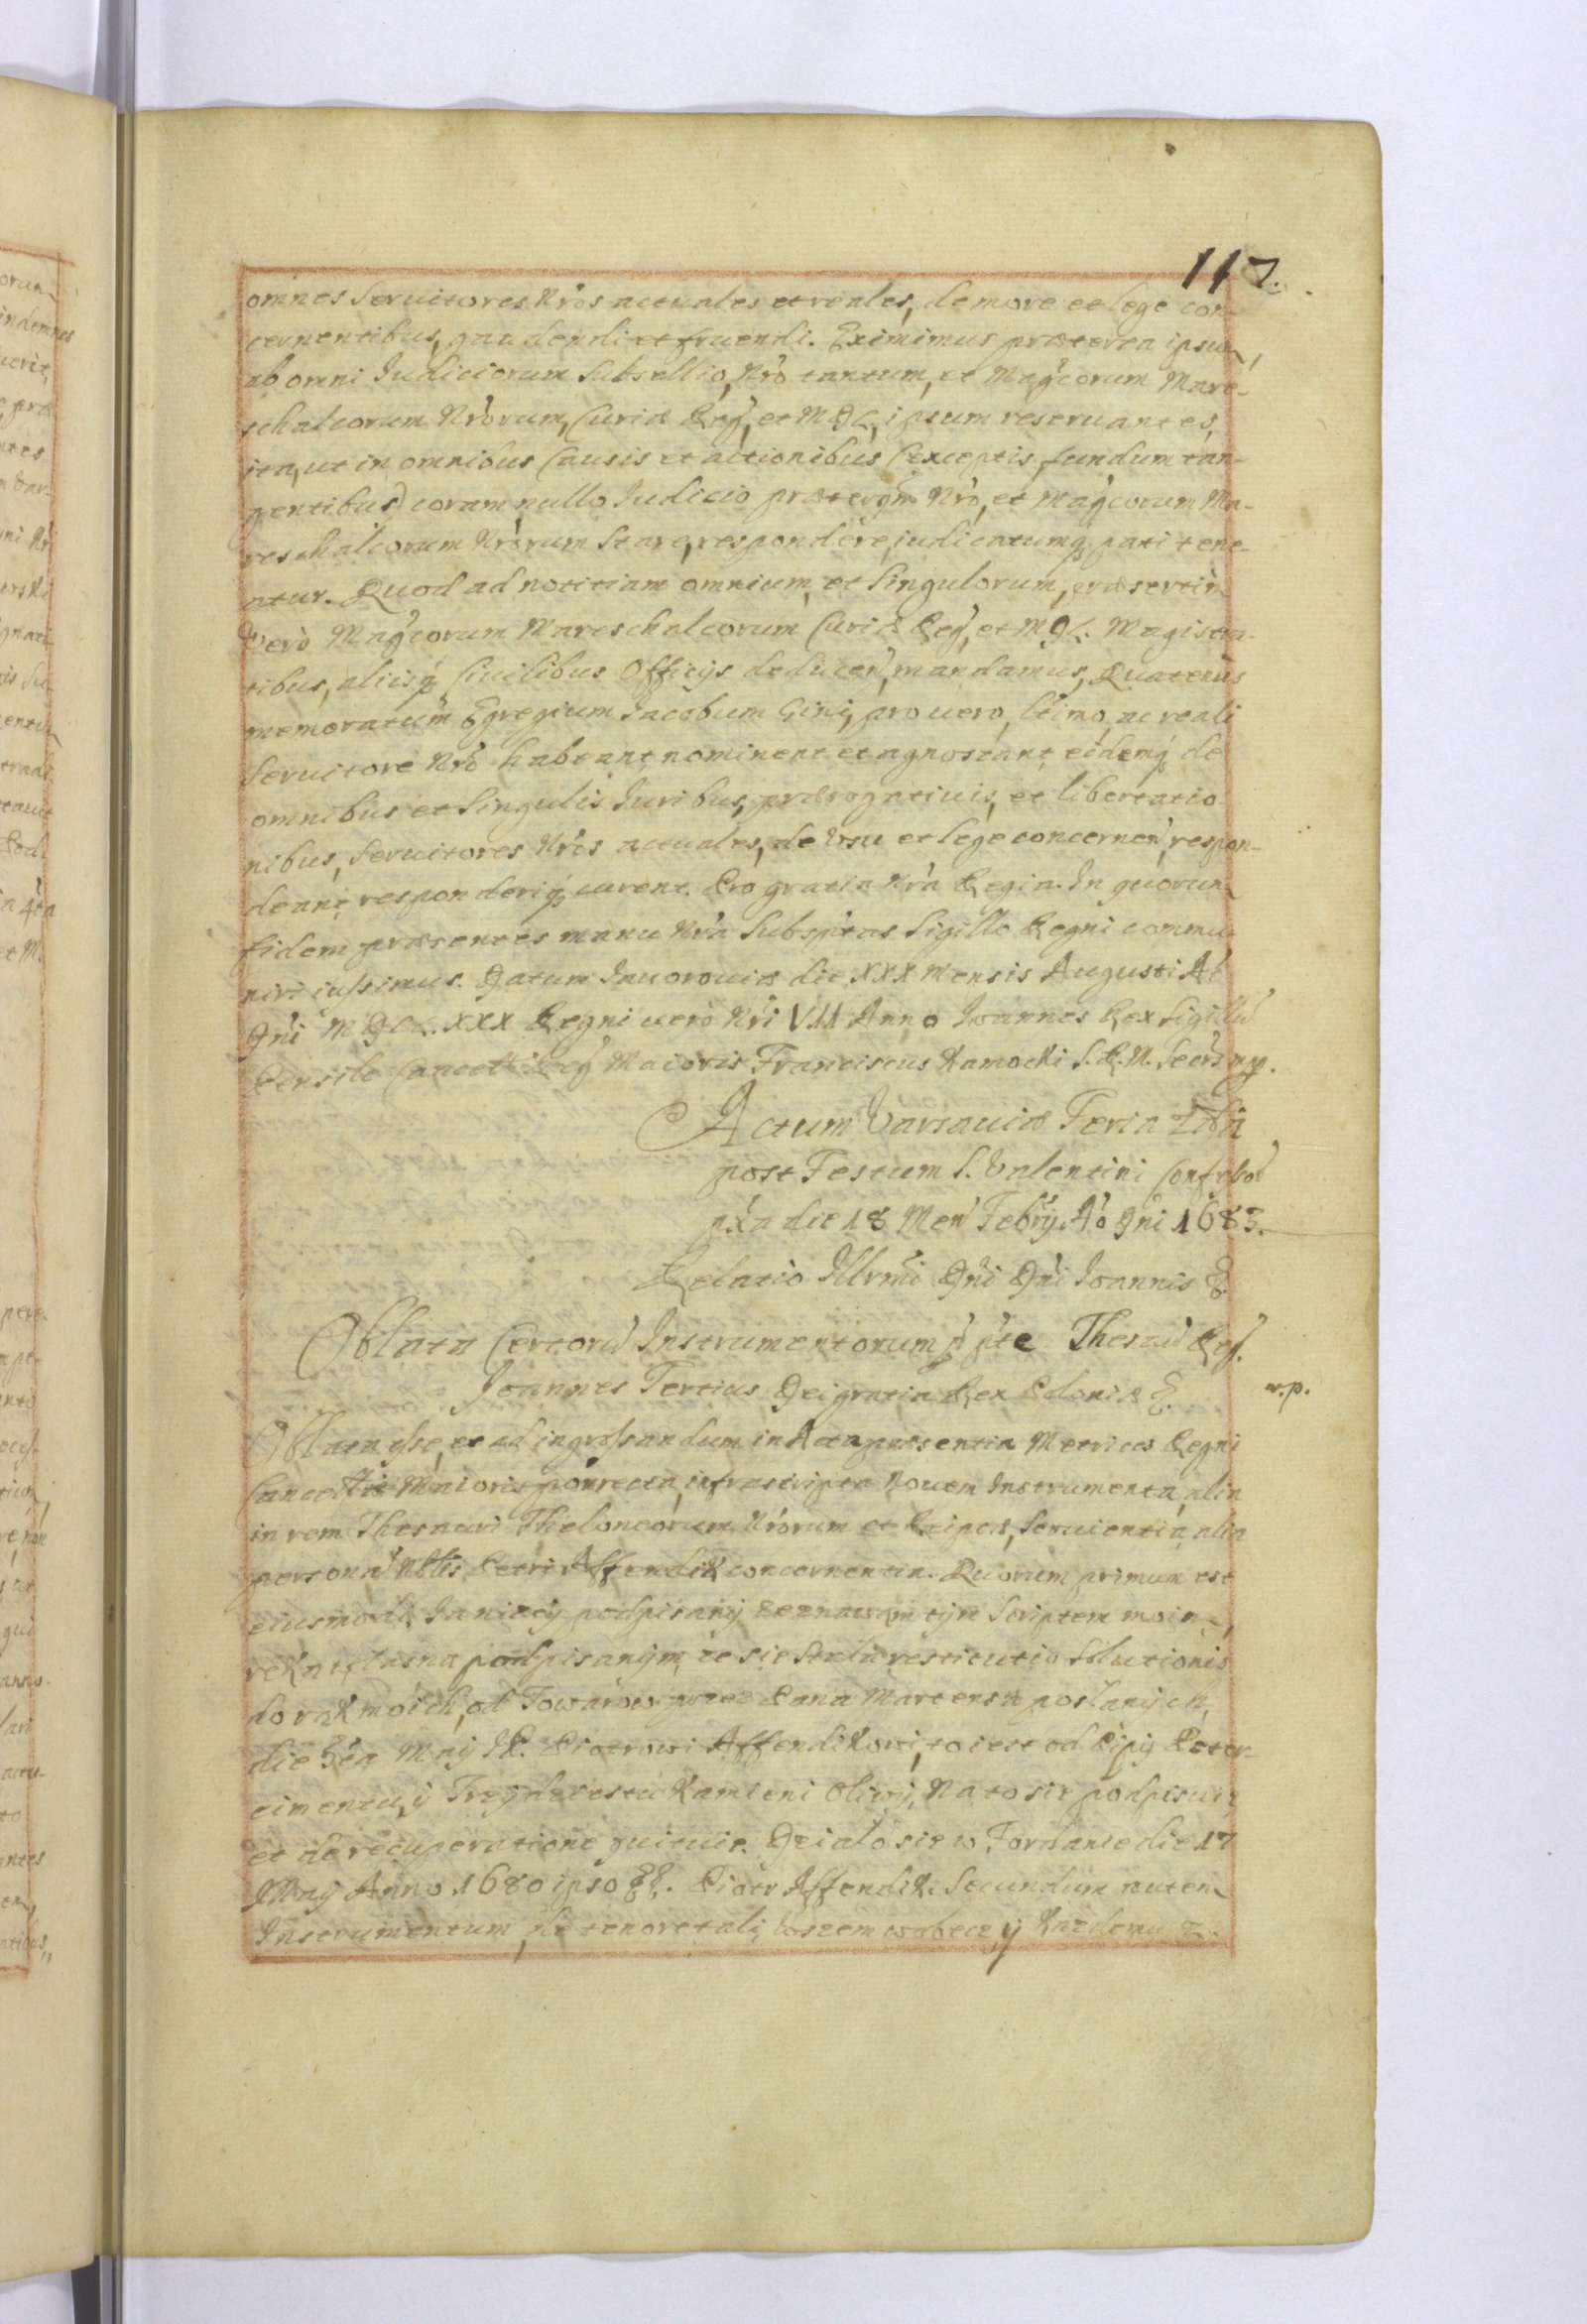 117.
omnes Seruitores Nr̃os actuales et reales, de more et lege con-
cernentibus, gaudendi et fruendi. Eximimus præterea ipsum,
ab omni Iudiciorum Subsellio, Nr̃o tantum, et Magcorum Mare-
schalcorum Nr̃orum, Curiæ Reg, et MDL, ipsum reseruantes,
ita, ut in omnibus Causis et actionibus (exceptis fundum tan-
gentibus) coram nullo Iudicio præterqm̃ Nr̃o, et Magcorum Ma-
reschalcorum Nr̃orum Stare, respondere, iudicatumq pati tene-
atur. Quod ad notitiam omnium, et Singulorum, præsertim
Verò Magcorum Mareschalcorum Curiæ Reg, et MDL. Magistra-
tibus, aliisq Ciuilibus Officijs deducen, mandamus, Quatenus
memoratum Egregium Iacobum Gini, pro uero, ltimo, ac reali
Seruitore Nr̃o habeant, nominent et agnoscant, eidemq de
omnibus et Singulis Iuribus, prærogatiuis, et libertatio-
nibus, Seruitores Nr̃os actuales, de Vsu et lege concernen, respon-
deant, responderiq curent. Pro gratia Nr̃a Regia. In quorum
fidem præsentes manu Nr̃a Subsptas Sigillo Regni commu-
niri iussimus. Datum Iauorouiæ die XXX Mensis Augusti Ao
Dni MDCL.XXX Regni uero Nr̃i VII Anno Ioannes Rex Sigillu
Pensile Cancellæ Reg Maioris Franciscus Kamocki S. R. M. Secrs mp.
Actum Varsauiæ Feria 5ta
post Festum S. Valentini Confessor
pxa die 18 Men Febrij Ao Dni 1683.
Relatio Illrmi Dni Dni Ioannis &
Oblata Certoru Instrumentorum p pte Thesau Reg.
Joannes Tertius Dei gratia Rex Poloniæ &. m.p.
Oblata esse, et ad ingrossandum in Acta præsentia Metrices Regni
Cancellæ Maioris porrecta, infrascripta Nouem Instrumenta, alia
in rem Thesauri Theloneorum Nr̃orum et Reipcæ, Seruientia, alia
personã Nblis Petri Affendik concernentia. Quorum primum est
eiusmodi. Ja niżeÿ podpisanÿ zeznawam tÿm Scriptem moią,
ręką własną podpisanÿm, że się stała restitutio Solutionis
do rąk moich, od Towarow przez Pana Martensa posłanÿch,
die 3tia Maij JP. Piotrowi Affendikowi, to iest od Pipÿ Peter-
cimentu, ÿ Treÿ beczestu Kamieni Oliwÿ, Na to się podpisuię
et de recuperatione quituię. Działo się w Fordanie die 17
Maij Anno 1680 ipso &&. Piotr Affendik. Secundum autem
Instrumentum, de tenore tali, Wszem wobecz, ÿ Każdemu z